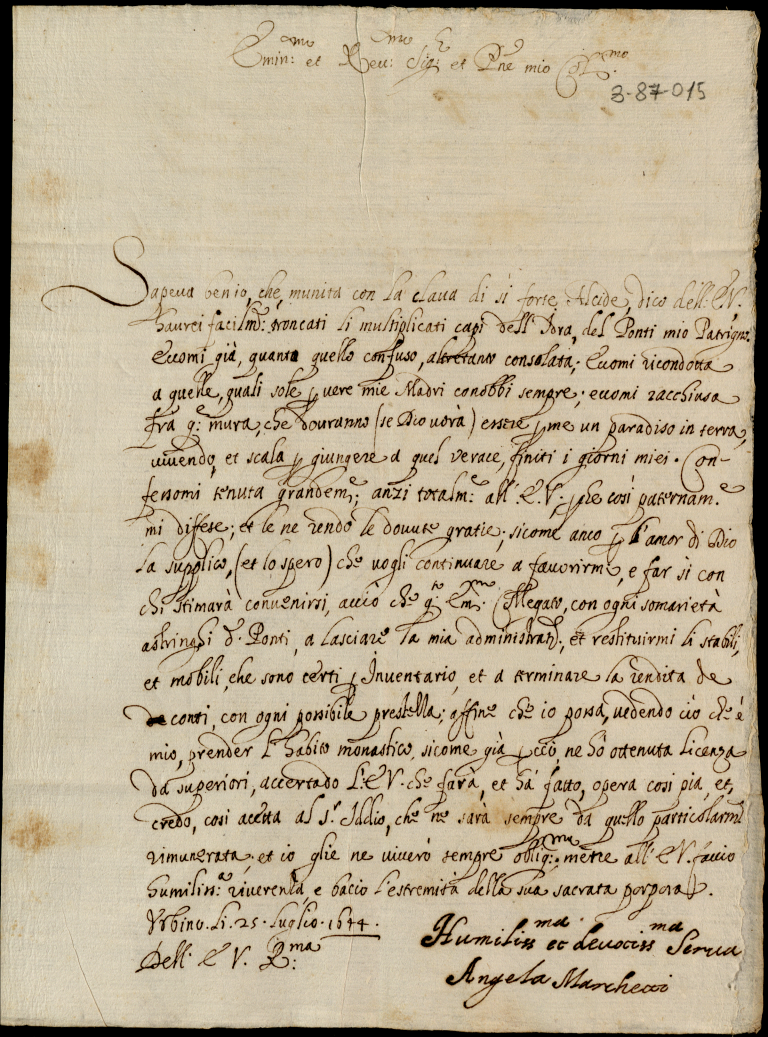 Emin:mo et Reu:mo Sig:r et Pne mio Col:mo
3-87-015
Sapeua ben io, che munita con la claua di sì forte Alcide, dico dell: E.V.
haurei facilm:e troncati li multiplicati capi dell'Idra, del Ponti mio Patrigno.
Eccomi già, quanto quello confuso, altretanto consolata; Eccomi ricondotta
a quelle, quali sole p uere mie Madri conobbi sempre; eccomi racchiusa
frà q:e mura, che douranno (se Dio uorà) essere p me un paradiso in terra,
uiuendo, et scala p giungere a quel uerace, finiti i giorni miei. Con-
fessomi tenuta grandem:e; anzi totalm:e all' E.V., p che così paternam:e
mi difese; et le ne rendo le douute gratie; sicome anco p l'amor di Dio
la supplico, (et lo spero) che uogli continuare a fauorirmi, e far sì con
chi stimarà conuenirsi, acciò che q:to Em:mo Legato, con ogni somarietà
astringhi d. Ponti, a lasciare la mia administrat:e, et restituirmi li stabili,
et mobili, che sono certi p Inuentario, et a terminare la rendita de
conti, con ogni possibile prestezza; affine che io possa, uedendo ciò che è
mio, prender l'habito monastico, sicome già p ciò, ne hò ottenuta licenza
da superiori, accertado l: E V. che farà, et hà fatto, opera così pia, et,
credo, così acetta al S.r Iddio, che ne sarà sempre da quello particolarm:e
rimunerata; et io glie ne uiuerò sempre oblig:ma; mètre all' E V. faccio
humilis:a riuerenza, e bacio l'estremità della sua sacrata porpora.
Vrbino. li. 25. Luglio. 1644.
Dell: E V. R:ma
Humiliss:ma et deuotiss:ma Serua
Angela Marchetti